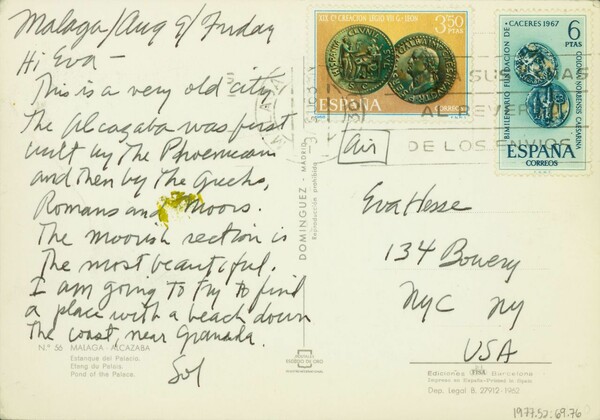 Malaga/Aug 9/Friday
Hi Eva—
This is a very old city.
The Alcazaba was first
built by the Phoenicians
and then by the Greeks,
Romans and Moors.
The moorish section is
the most beautiful.
I am going to try to find
a place with a beach down
the coast, near Granada.
Sol
N.º 56 MALAGA - ALCAZABA
Estanque del Palacio.
Etang du Palais.
Pond of the Palace.
DOMINGUEZ - MADRID
Reproducción prohibida
XIX Cº CREACION LEGIO VII G.-LEON
3'50
PTAS
ESPAÑA
CORREOS
BIMILENARIO FUNDACION DE CACERES 1967
6
PTAS
COLONIA NORBENSIS CAESARINA
ESPAÑA
CORREOS
AL REVERSO
DE LOS ENVIOS
Air
Eva Hesse
134 Bowery
NYC NY
USA
Ediciones Barcelona
Impreso en España-Printed in Spain
Dep. Legal B. 27912-1962
1977.52.69.76